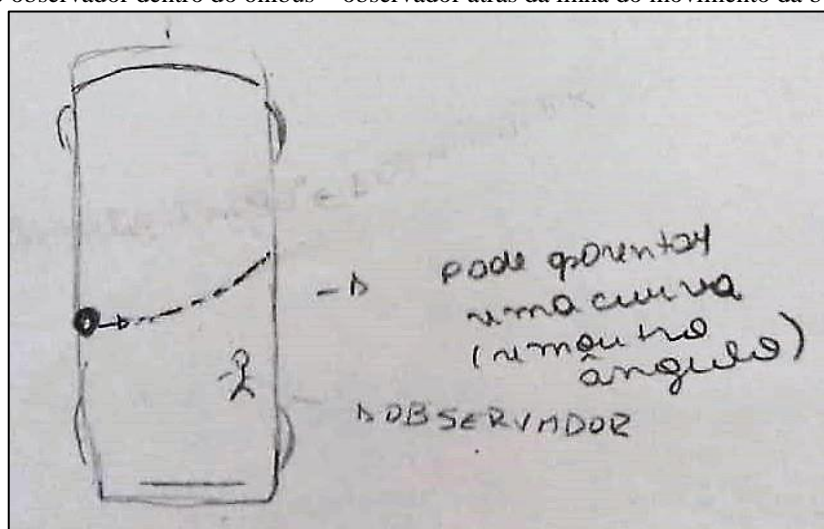 observador dentro do ônibus – observador atrás da linha do movimento da
pode aparentar
uma curva
(num outro
ângulo)
OBSERVADOR